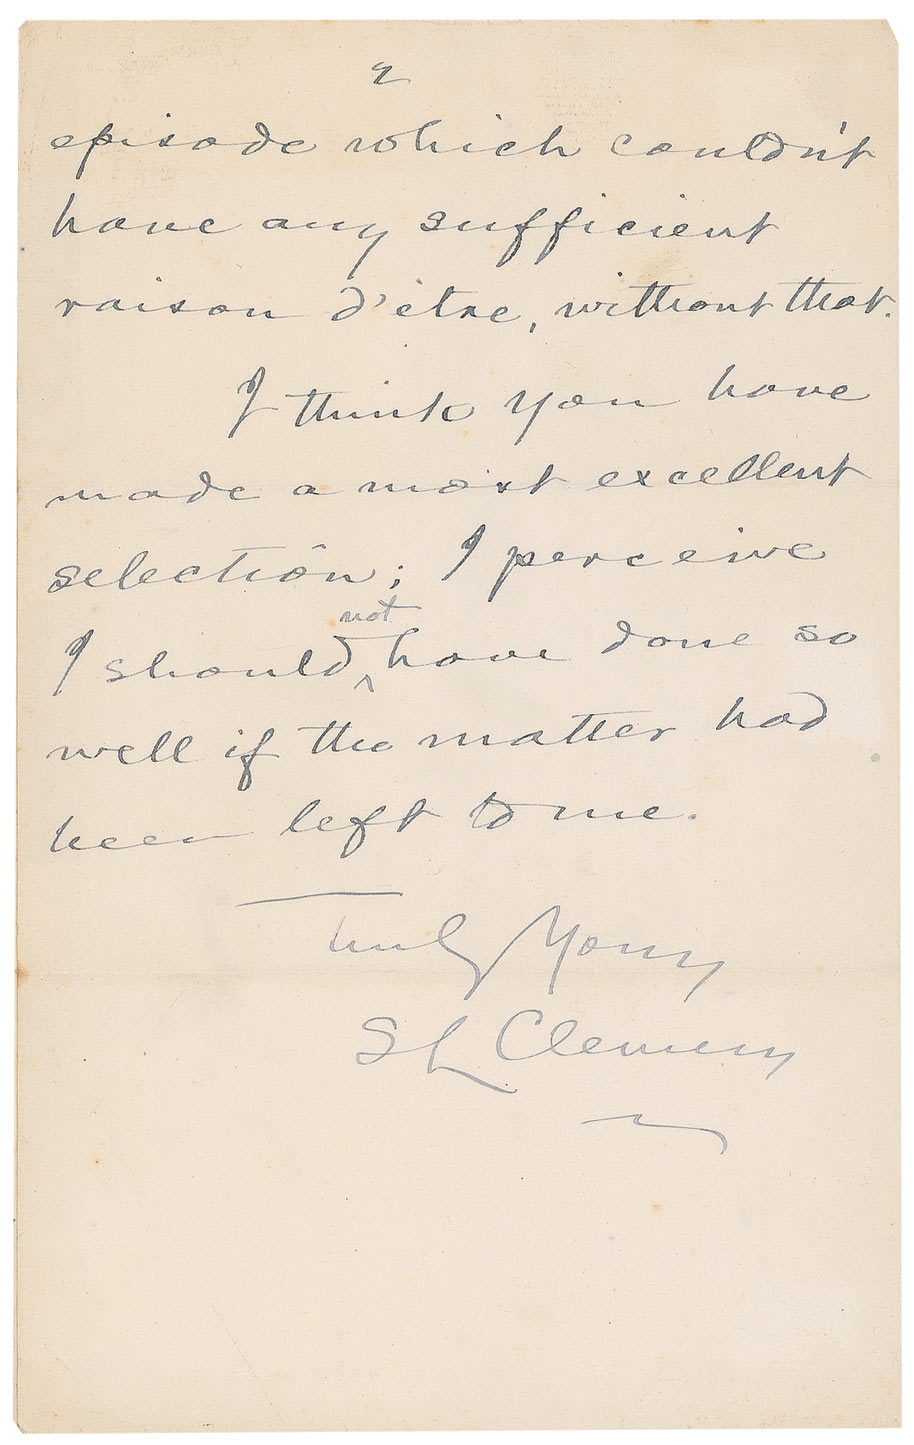 2
episode which couldn't
have any sufficient
raison d'être, without that.
I think you have
made a most excellent
selection; I perceive
not
I should ‸ have done so
well if the matter had
been left to me.
Truly Yours
SL Clemens